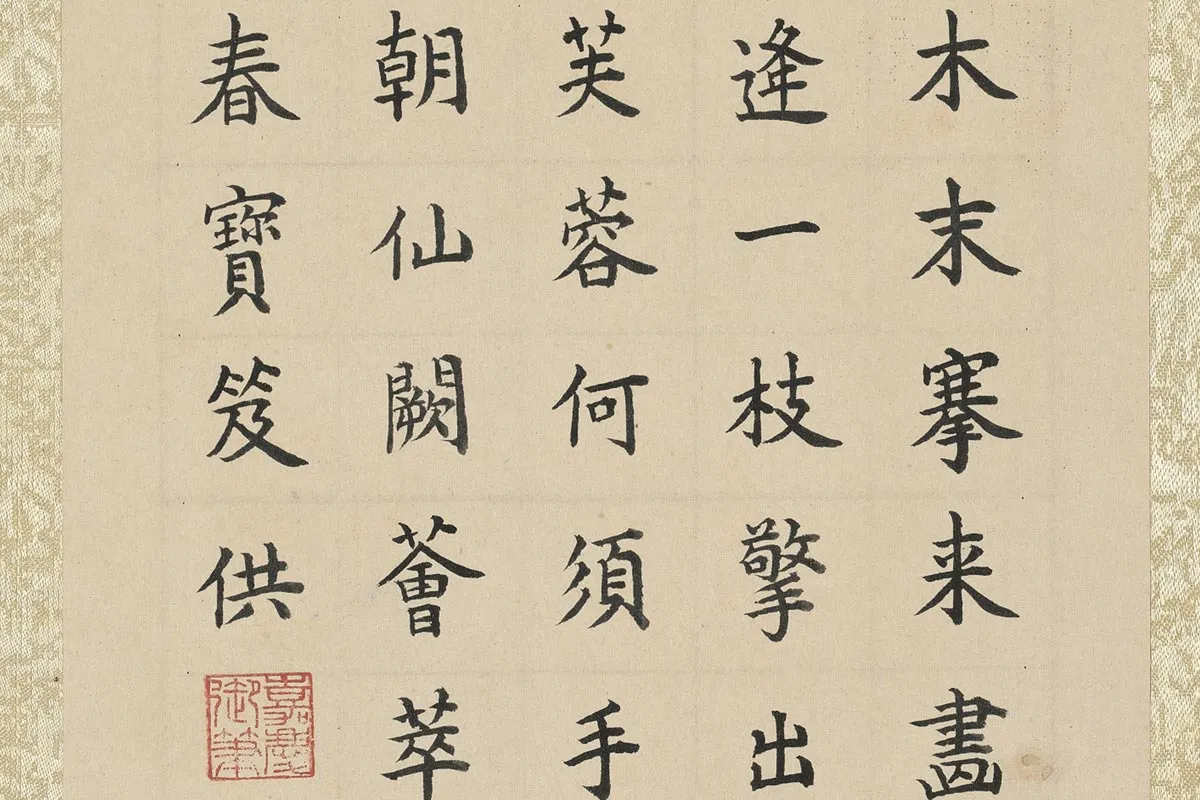 木末搴来畵
逢一枝擎出
芙蓉何須手
朝仙闕薈萃
春寳笈供
嘉慶
御筆